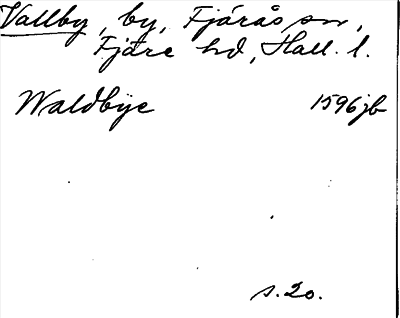 Vallby, by, Fjärås sn,
Fjäre hd, Hall. l.
Waldbÿe 1596 jb
s. 20.